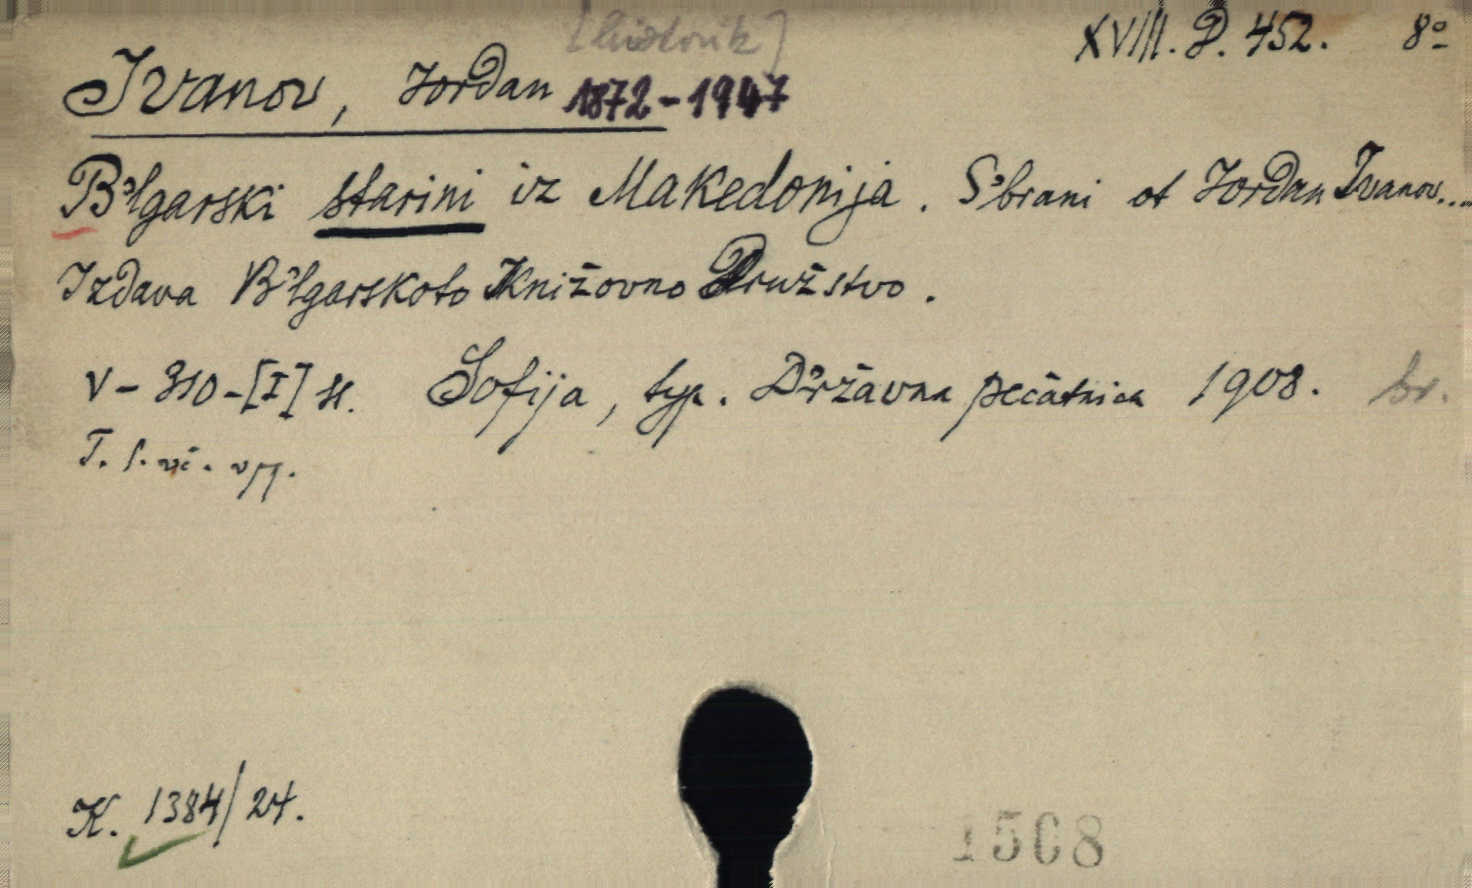 [historik] XVIII. D. 452. 8º
Ivanov, Jordan 1872-1947
B'lgarski starini iz Makedonija. S'brani ot Jordan Ivanov....
Izdava B'lgarskoto Knižovno Družstvo.
V-310-[I] st. Sofija, typ. D'ržavna pečatnica 1908. br.
K. 1384/24.
1508